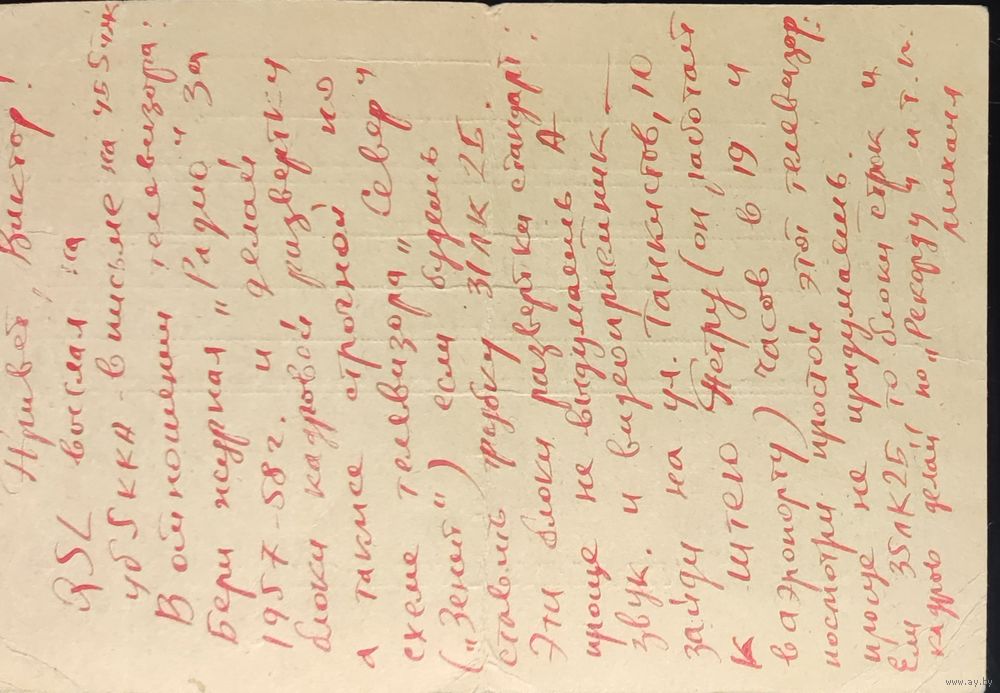 Привет, Виктор!
QSL выслал на
УБ5ККА - в письме на УБ5ЧЖ
В отношении телевизора:
Бери журнал "Радио" за
1957-58 г. и делай
блоки кадровой развертки
а также строчной по
схеме телевизора "Север"
("Зенит") если будешь
ставить трубку 31ЛК2Б.
Эти блоки развертки стандарт:
проще не выдумаешь. А
звук. и видеоприемник —
зайди на ул. Танкистов, 10
к Петру (он работает
в аэропорту) часов в 19 и
посмотри простой этот телевизор:
проще не придумаешь.
Если 35ЛК2Б то блоки строк и
кадров делай по "Рекорду" и т.п.
Михаил
www.ay.by